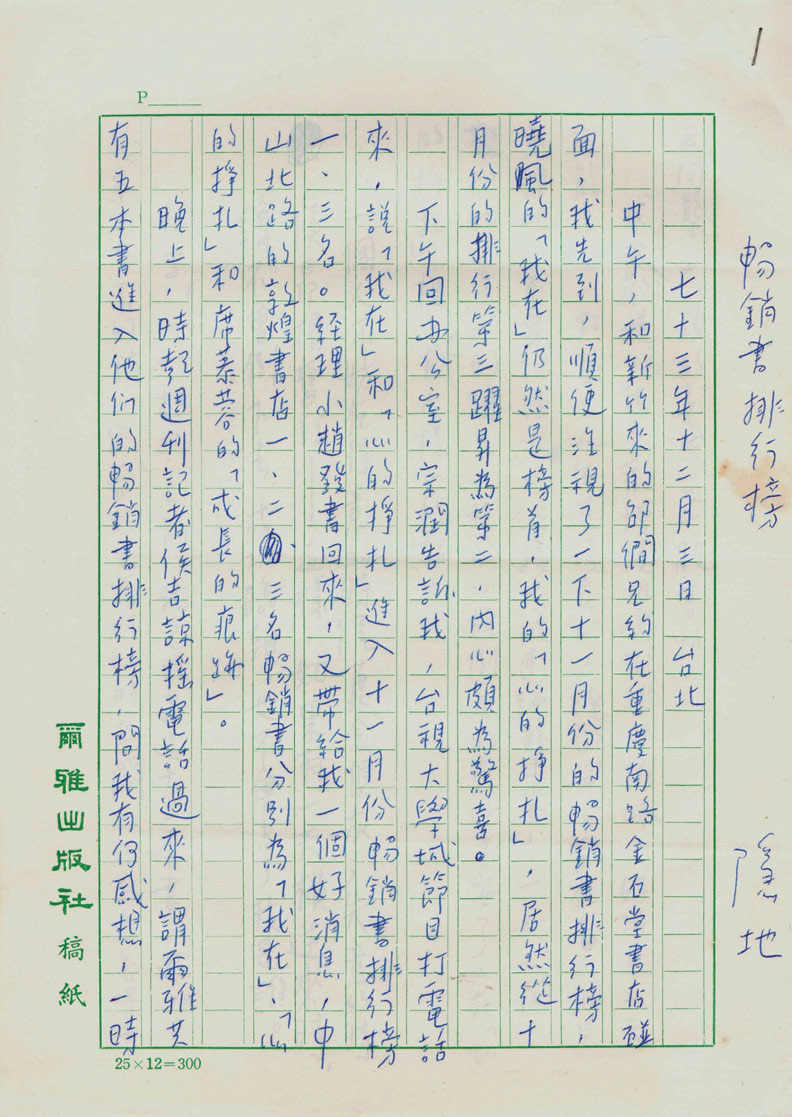 1
暢銷書排行榜
隱地
七十三年十二月三日 台北
中午，和新竹來的邵僩兄約在重慶南路金石堂書店碰
面，我先到，順便注視了一下十一月份的暢銷書排行榜，
曉風的「我在」仍然是榜首，我的「心的掙扎」，居然從十
月份的排行第三躍昇為第二，內心頗為驚喜。
下午回办公室，宗潤告訴我，台視大學城節目打電話
來，說「我在」和「心的掙扎」進入十一月份暢銷書排行榜
一、三名。經理小趙發書回來，又帶給我一個好消息，中
山北路的敦煌書店一、二、三名暢銷書分別為「我在」、「心
的掙扎」和席慕蓉的「成長的痕跡」。
晚上，時報週刊記者侯吉諒搖電話過來，謂爾雅共
有五本書進入他們的暢銷書排行榜，問我有何感想，一時
P
25×12=300
爾雅出版社稿紙